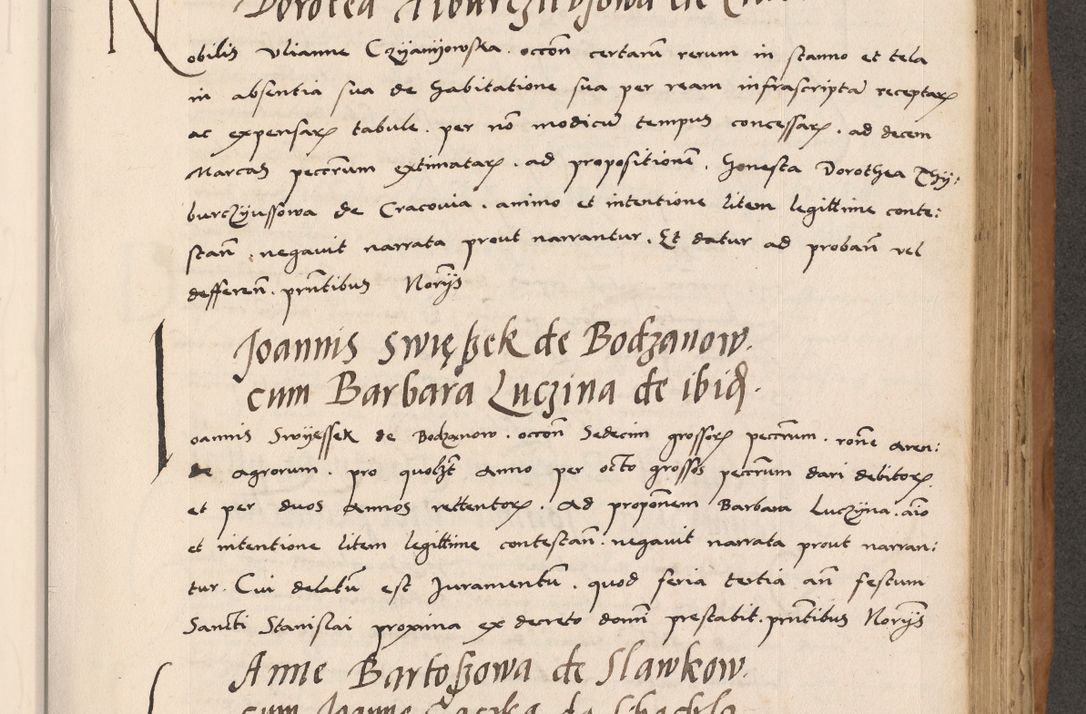 Dorotea
Nobilis Vlianne Czyanyowska . occōn certarū rerum in stanno et tela
in absentia sua de habitatione sua per ream infrascriptā receptarꝝ
ac expensarꝝ tabule . per nō modicū tempus concessarꝝ . ad decem
Marcas peccūrum extimatarꝝ . ad propositionē . honesta Dorothea Thy:
burczyussowa de Cracouia . animo et intentione litem legittime conte:
stan̄ . negauit narrata prout narrantur . Et datur ad proban̄ vel
defferen̄ . prn̄tibus Norijs
Joannis Swięszek de Bodzanow .
cum Barbara Luczina de ibid .
Ioannis Swyessek de Bodzanow . occōn Sedecim grossorꝝ peccūrum . rōne Aren:
de Agrorum . pro quolȝt Anno per octo grossos peccūrum dari debitorꝝ
et per duos Annos rettentorꝝ . Ad propōnem Barbara Luczyna . aīo
et intentione litem legittime contestan̄ . negauit narrata prout narran:
tur . Cui delatū est Juramentū . quod feria tertia an̄ festum
Sancti Stanislai proxima ex decreto domī prestabit . prn̄tibus Norijs
Anne Bartoszowa de Slawkow .
cum Joanne